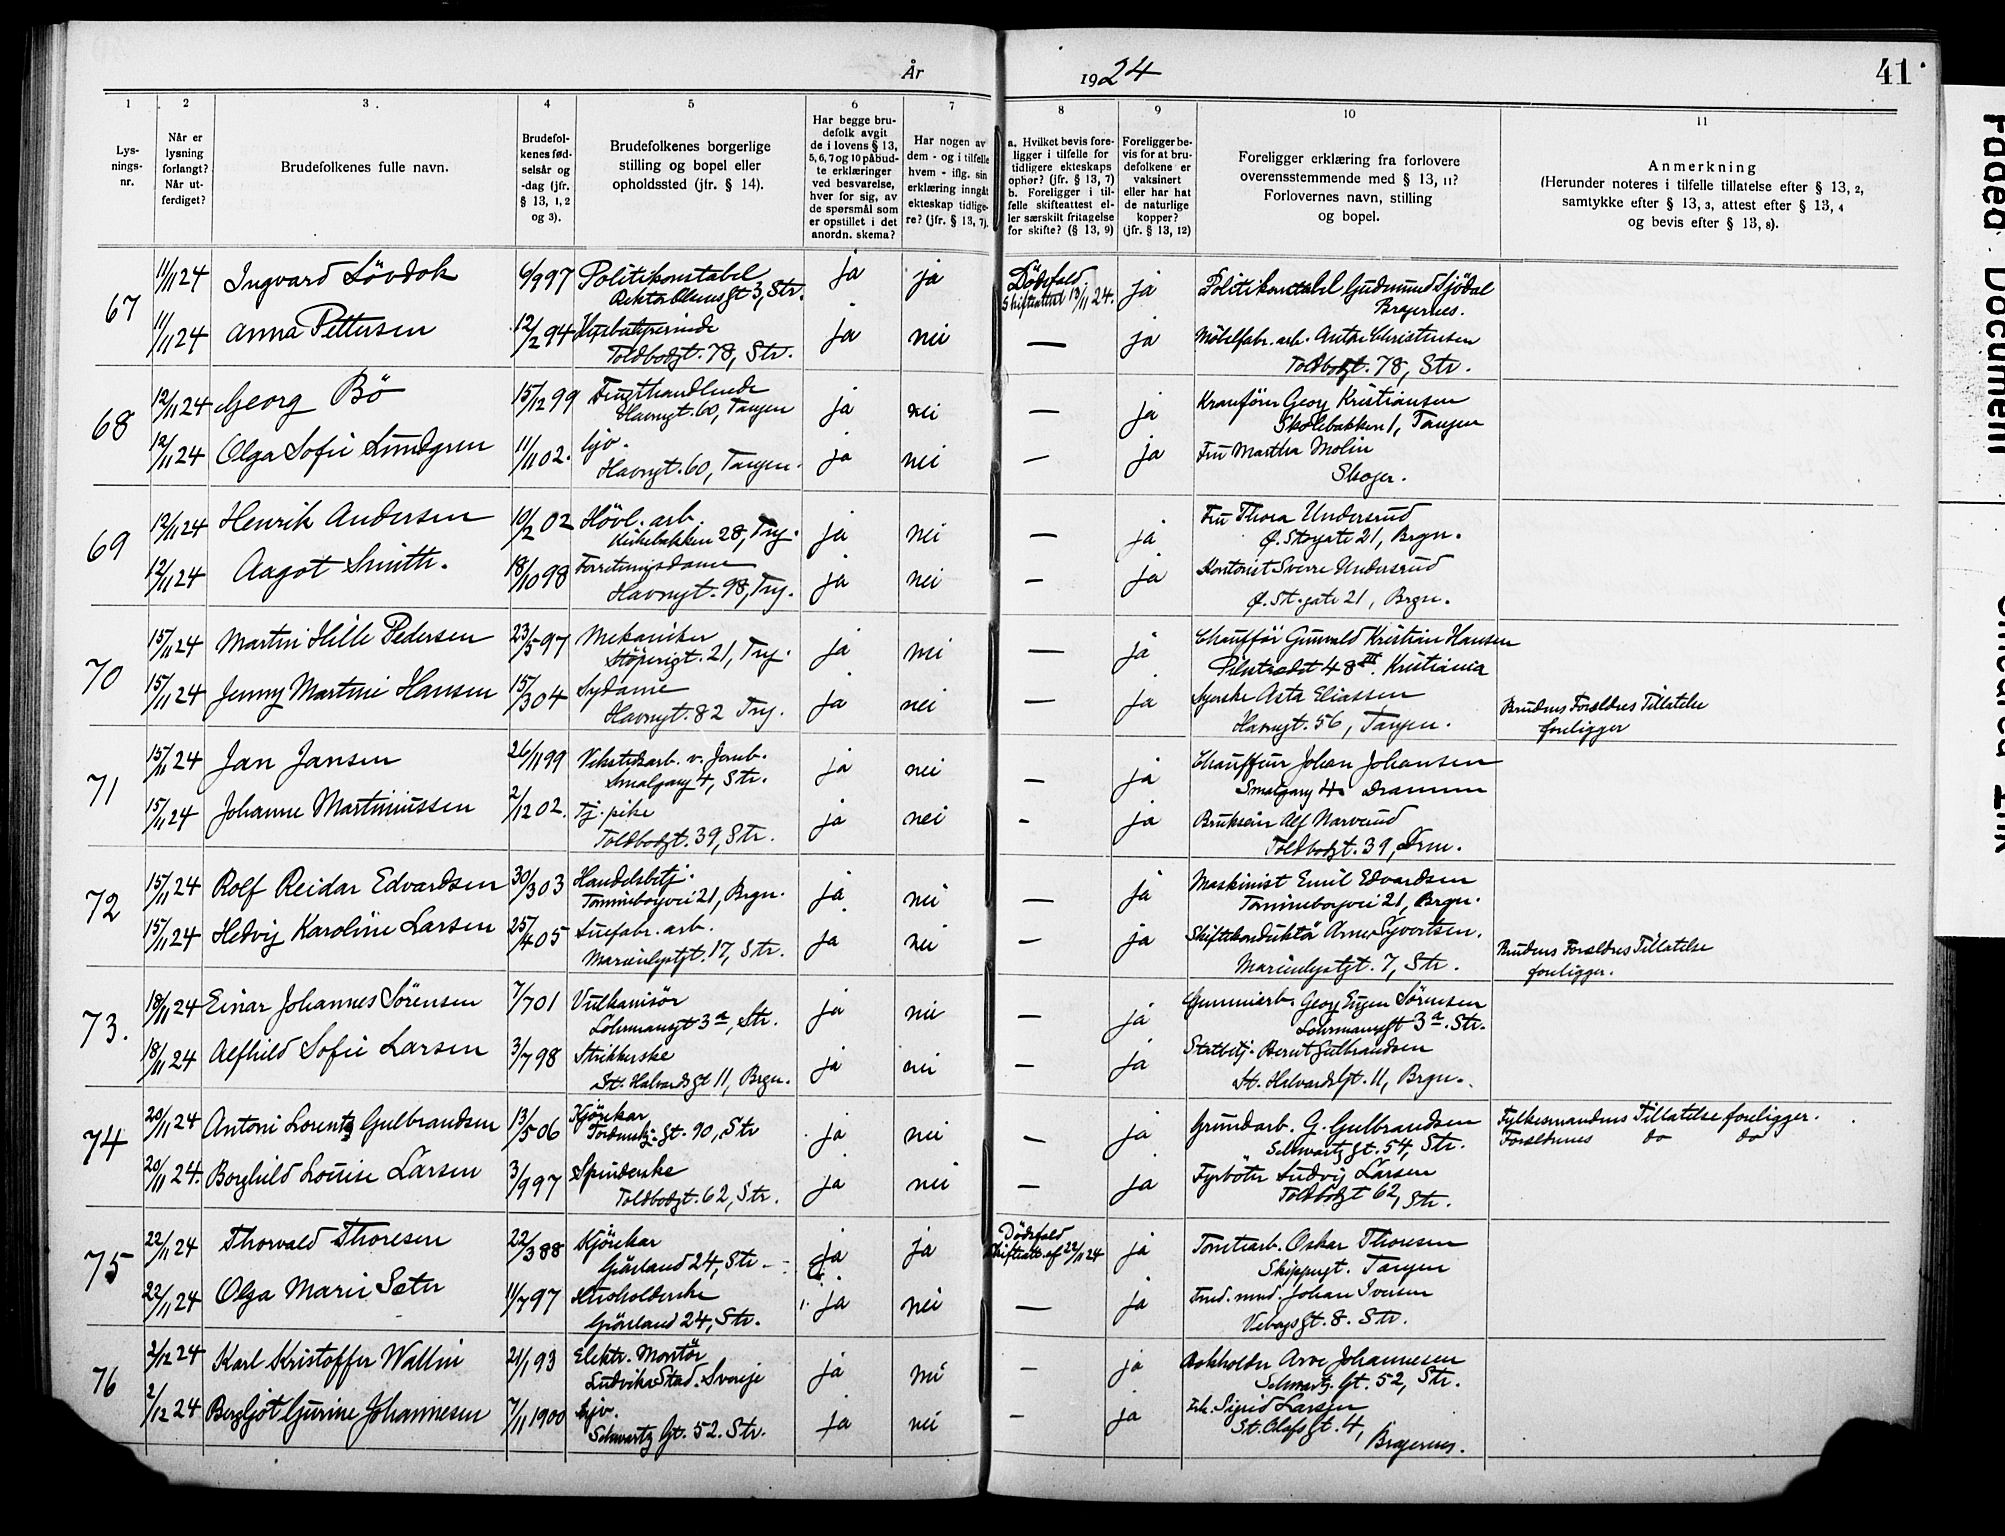 År 1924
41
1
2
3
4
5
6
7
8
9
10
11
Lys-
nings-
nr.
Når er
lysning
forlangt?
Når ut-
ferdiget?
Brudefolkenes fulle navn.
Brudefol-
kenes fød-
selsår og
-dag (jfr.
§ 13, 1, 2
og 3).
Brudefolkenes borgerlige
stilling og bopel eller
opholdssted (jfr. § 14).
Har begge bru-
defolk avgit
de i lovens § 13,
5, 6, 7 og 10 påbud-
te erklæringer
ved besvarelse,
hver for sig, av
de spørsmål som
er opstillet i det
anordn. skema?
Har nogen av
dem - og i tilfelle
hvem - iflg. sin
erklæring inngåt
ekteskap tidlige-
re? (jfr. § 13, 7).
a. Hvilket bevis fore-
ligger i tilfelle for
tidligere ekteskaps
ophør? (jfr. § 13, 7)
b. Foreligger i til-
felle skifteattest el-
ler særskilt fritagelse
for skifte? (§ 13, 9)
Foreligger be-
vis for at bru-
defolkene er
vaksinert
eller har hat
de naturlige
kopper?
(jfr. § 13, 12)
Foreligger erklæring fra forlovere
overensstemmende med § 13, 11?
Forlovernes navn, stilling
og bopel.
Anmerkning
(Herunder noteres i tilfelle tillatelse efter § 13, 2,
samtykke efter § 13, 3, attest efter § 13, 4
og bevis efter § 13, 8).
67
11/11 24 Ingvard Lövdok 6/9 97 Politikonstabel ja ja Dödsfald ja Politikonstabel Gudmund Sjödal
gt 3, Str. Skifteattest 13/11 24. Bragernes.
11/11 24 Anna Pettersen 12/2 94 Husbestyrerinde ja nei — ja Möbelfabr. arb. Anton Christensen
Toldbodgt. 78, Str. Toldbodgt. 78, Str.
68
12/11 24 Georg Bö 15/12 99 Frugthandlende ja nei — ja Kranförer Georg Kristiansen
Havnegt. 60, Tangen Skolebakken 1, Tangen
12/11 24 Olga Sofie Lundgren 11/11 02. hjv. ja nei — ja Fru Martha Molin
Havnegt. 60, Tangen. Skoger.
69
12/11 24 Henrik Andersen 10/2 02 Hövl. arb. ja nei — ja Fru Thora Undersrud
Kirkebakken 28, Tng. Ø. Storgate 21, Brgn.
12/11 24 Aagot Smith. 18/10 98 Forretningsdame ja nei — ja Kontorist Sverre Undersrud
Havnegt. 98, Tng. Ø. St. gate 21, Brgn.
70
15/11 24 Martin Hille Pedersen 23/5 97 Mekaniker ja nei — ja Chaufför Gunvald Kristian Hansen
Støperigt. 21, Tng. Pilestrædet 48 III. Kristiania
15/11 24 Jenny Martine Hansen 15/3 04 Sydame ja nei — ja Syerske Asta Eliassen Brudens Forældres Tillatelse
Havnegt. 82 Tng. Havnegt. 56, Tangen. foreligger
71
15/11 24 Jan Jansen 26/11 99 Verkstedarb. v. Jernb. ja nei — ja Chauffeur Johan Johansen
Smalgang 4, Str. Smalgang 4 Drammen
15/11 24 Johanne Martiniussen 2/12 02. Tj. pike ja nei - ja Brukseier Alf Narverud
Toldbodgt. 39, Str. Toldbodgt. 39, Drm.
72
15/11 24 Rolf Reidar Edvardsen 30/3 03 Handelsbetj. ja nei — ja Maskinist Emil Edvardsen
Tømmeborgvei 21, Brgn. Tømmeborgvei 21, Brgn.
15/11 24 Hedvig Karoline Larsen 25/4 05 Luefabr. arb. ja nei — ja Skiftekonduktör Arne Syvertsen. Brudens Forældres Tillatelse
Marienlystgt. 17, Str. Marienlystgt. 7, Str. foreligger.
73.
18/11 24 Einar Johannes Sörensen 7/7 01 Vulkanisör ja nei — ja Gummiarb. Georg Eugen Sörensen
Lohrmannsgt 3a, Str. Lohrmannsgt 3a. Str.
18/11 24 Alfhild Sofie Larsen 3/7 98 Strikkerske ja nei — ja Statbetj. Bernt Gulbrandsen
St. Halvardsgt 11, Brgn. St. Halvardsgt. 11, Brgn.
74
20/11 24 Antoni Lorentz Gulbrandsen 13/5 06 Kjörekar ja nei — ja Grundarb. G. Gulbrandsen Fylkesmandens Tillatelse foreligger.
Tordenskj. gt. 90, Str Schwartz gt. 54, Str. Forældrenes do do
20/11 24. Borghild Louise Larsen 3/9 97 Spinderske ja nei — ja Fyrböter Ludvig Larsen
Toldbodgt. 62, Str. Toldbodgt 62, Str.
75
22/11 24 Thorvald Thoresen 22/3 88 Kjörekar ja ja Dödsfald ja Tomtearb. Oskar Thoresen
Grönland 24, Str. Skifteatt. af 22/11 24 Skippergt. Tangen
22/11 24 Olga Marie Sæter 11/7 97 Husholderske ja nei — ja Johan Iversen
Grönland 24, Str. Vebergsgt. 8. Str.
76
2/12 24 Karl Kristoffer Wallin 21/1 93 Elektr. Montör ja nei — ja Bokholder Arve Johannesen
Ludvika Stad. Sverige Schwartz Gt. 52, Str.
2/12 24 Bergljot Gurine Johannesen 7/11 1900 hjv. ja nei - ja Frk. Sigrid Larsen
Schwartz Gt. 52. Str. St. Olafsgt. 4, Bragernes.
Faded Document
Ink